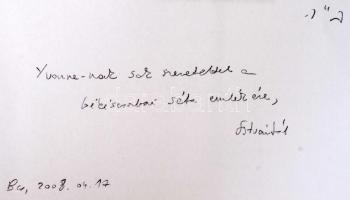 Yvonne-nak sok szeretettel a
békéscsabai séta emlékére,
Istvántól
Bcs, 2008. 04. 17